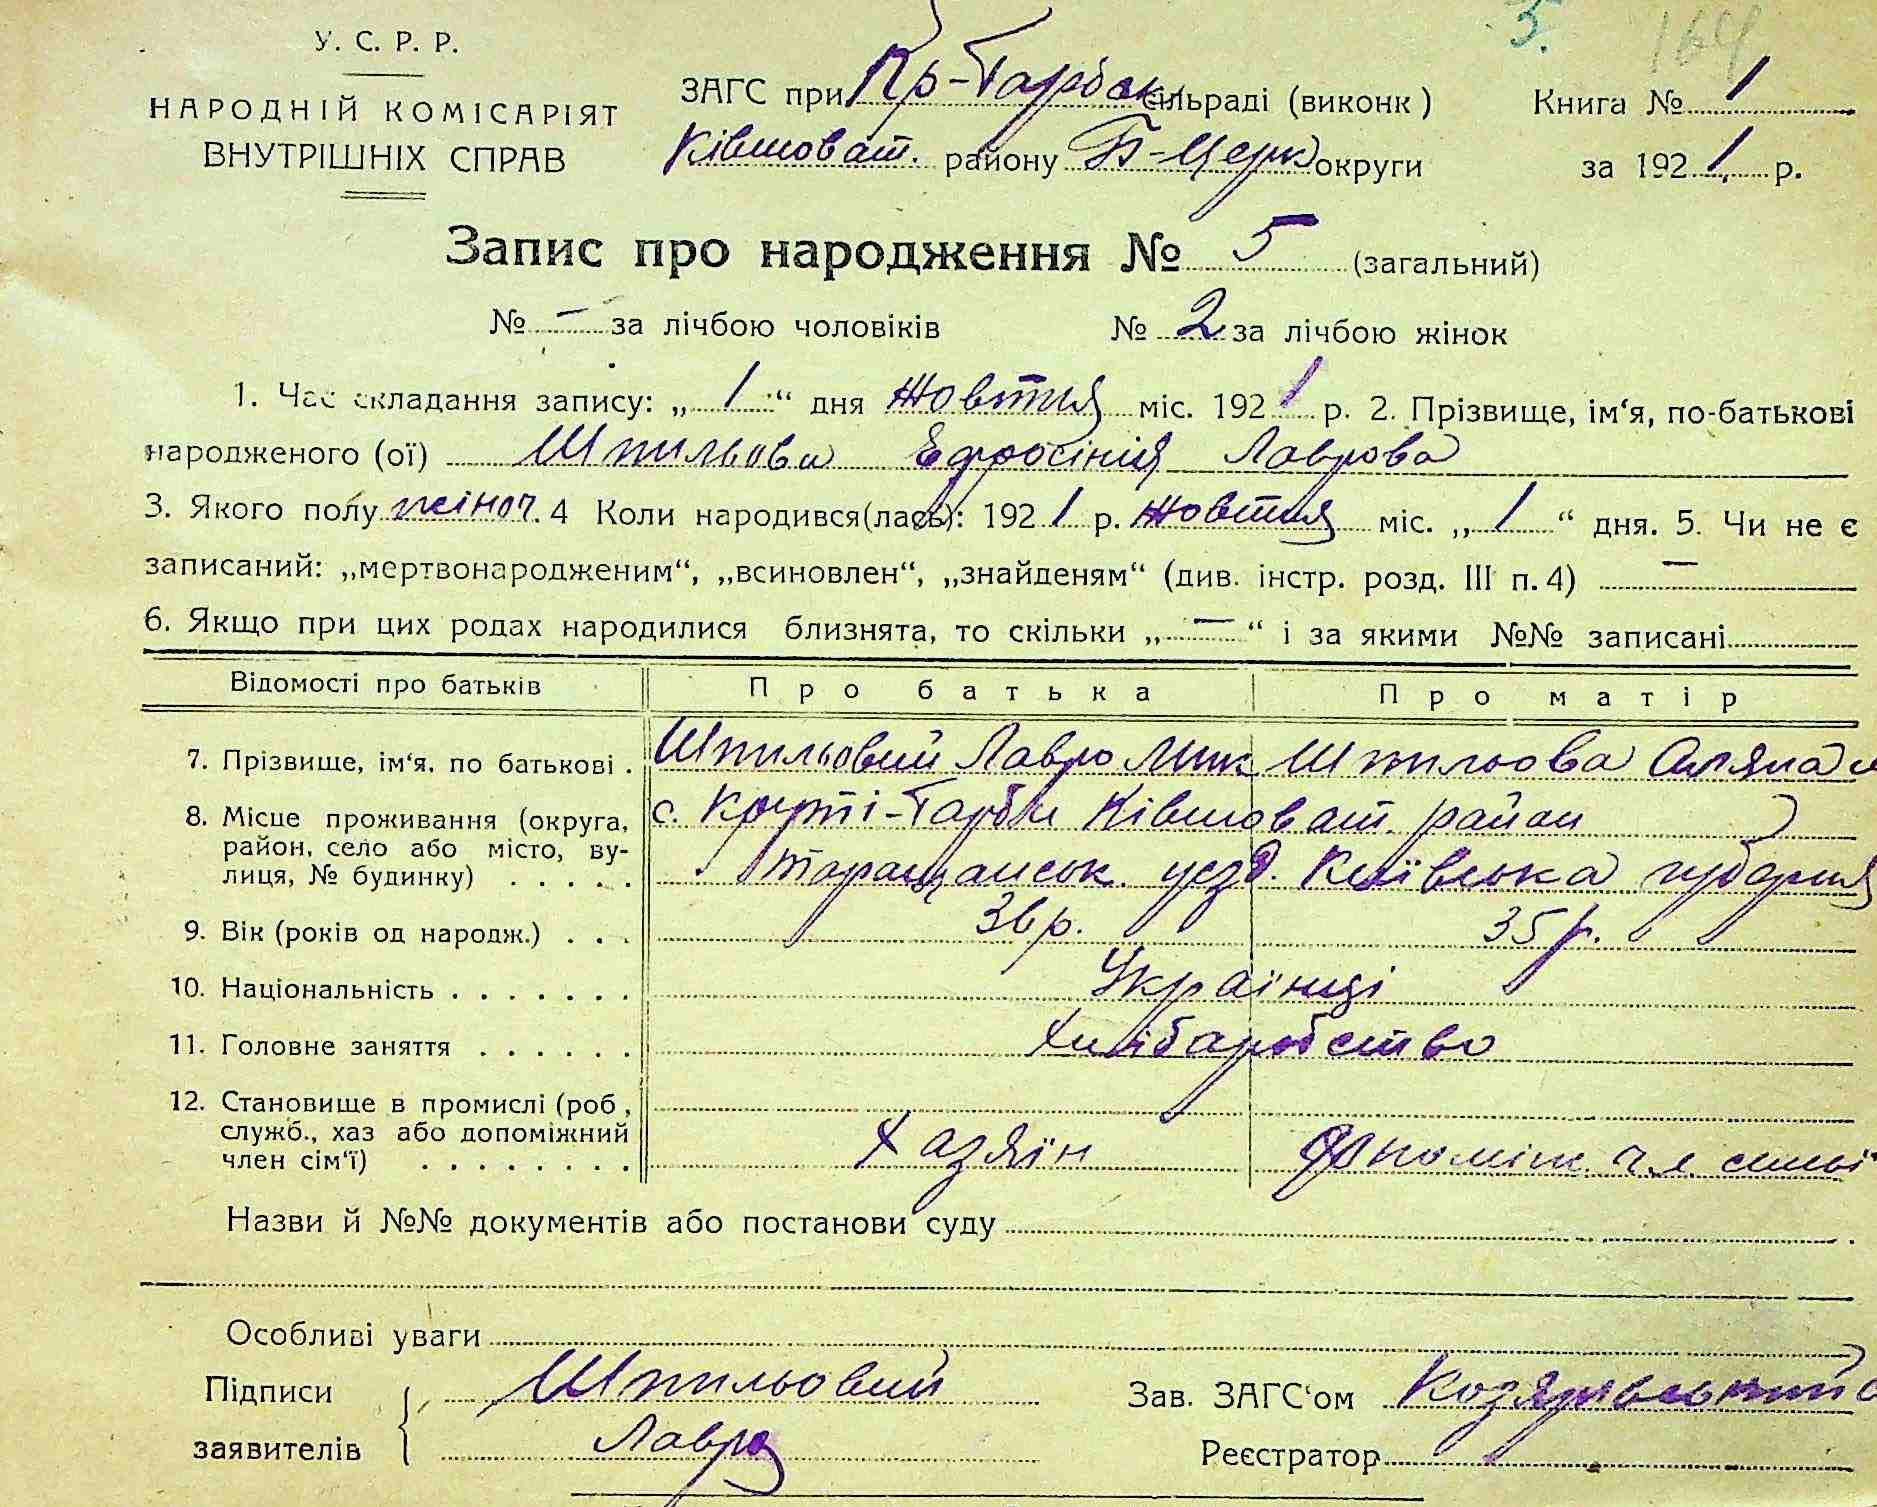 5. 164
У. С. Р. Р.
НАРОДНІЙ КОМІСАРІЯТ
ВНУТРІШНІХ СПРАВ
ЗАГС при Кр-Гарбак сільраді (виконк) Книга № 1
Ківшоват. району Б-Церк округи за 1921 р.
Запис про народження № 5 (загальний)
№ — за лічбою чоловіків № 2 за лічбою жінок
1. Час складання запису: „ 1 “ дня жовтня міс. 1921 р. 2. Прізвище, ім‘я, по-батькові
народженого (ої) Шпильова Ефросінія Лаврова
3. Якого полу жіноч. 4 Коли народився(лась): 1921 р. жовтня міс. „ 1 “ дня. 5. Чи не є
записаний: „мертвонародженим“, „всиновлен“, „знайденям“ (див. інстр. розд. III п. 4) —
6. Якщо при цих родах народилися близнята, то скільки „ — “ і за якими №№ записані
Відомості про батьків Про батька Про матір
7. Прізвище, ім‘я, по батькові . Шпильовий Лавро Мик Шпильова
8. Місце проживання (округа, с. Круті-Гарби Ківшоват. район
район, село або місто, ву-
лиця, № будинку) . . . . . Таращанськ. уезд. Київська губерня
9. Вік (років од народж.) . . . 36 р. 35 р.
10. Національність . . . . . . . Українці
11. Головне заняття . . . . . . Хліборобство
12. Становище в промислі (роб.,
служб., хаз або допоміжний Хазяїн допоміж. чл. сімьї
член сім‘ї) . . . . . . . .
Назви й №№ документів або постанови суду
Особливі уваги
Підписи Шпильовий Зав. ЗАГС‘ом
заявителів Лавро Реєстратор